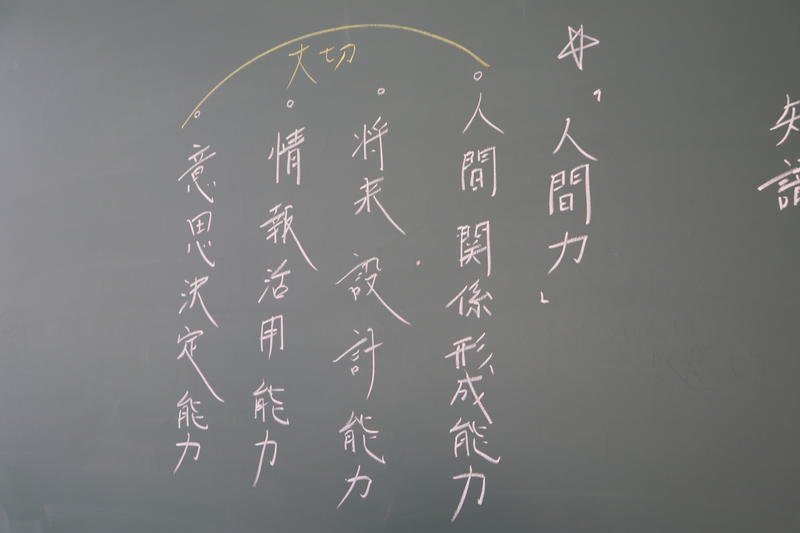 知
識
☆「人間力」
。人間関係形成能力
。将来設計能力
。情報活用能力
。意思決定能力
大切